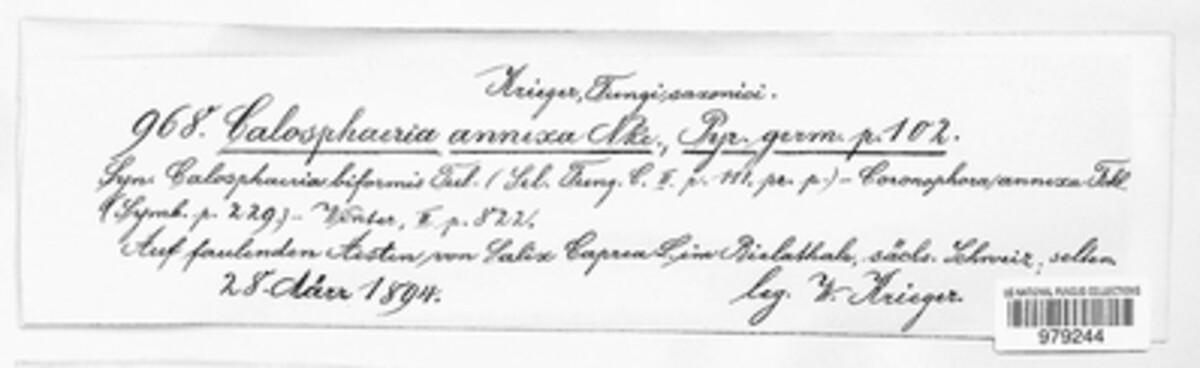 Krieger, Fungi saxonici.
968. Calosphaeria annexa Nke., Pyr. germ. p. 102.
Syn. Calosphaeria biformis Tul. (Sel. Fung. C. II. p. 111. pr. p.) - Coronophora annexa Fckl
(Symb. p. 229) - Winter, II p. 822.
Auf faulenden Aesten von Salix Caprea L. im Bielathale, sächs. Schweiz, selten
28 März 1894.
leg. W. Krieger.
US NATIONAL FUNGUS COLLECTIONS
979244